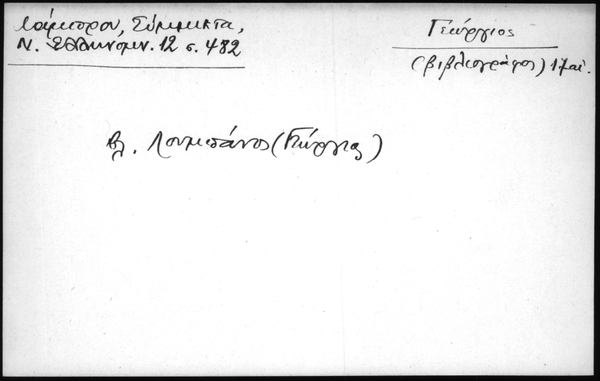 Λάμπρου, Σύμμικτα,
Ν. Ελληνομν. 12 σ. 482
Γεώργιος
(βιβλιογράφος) 17 αἰ.
βλ. Λουμπάνος (Γεώργιος)